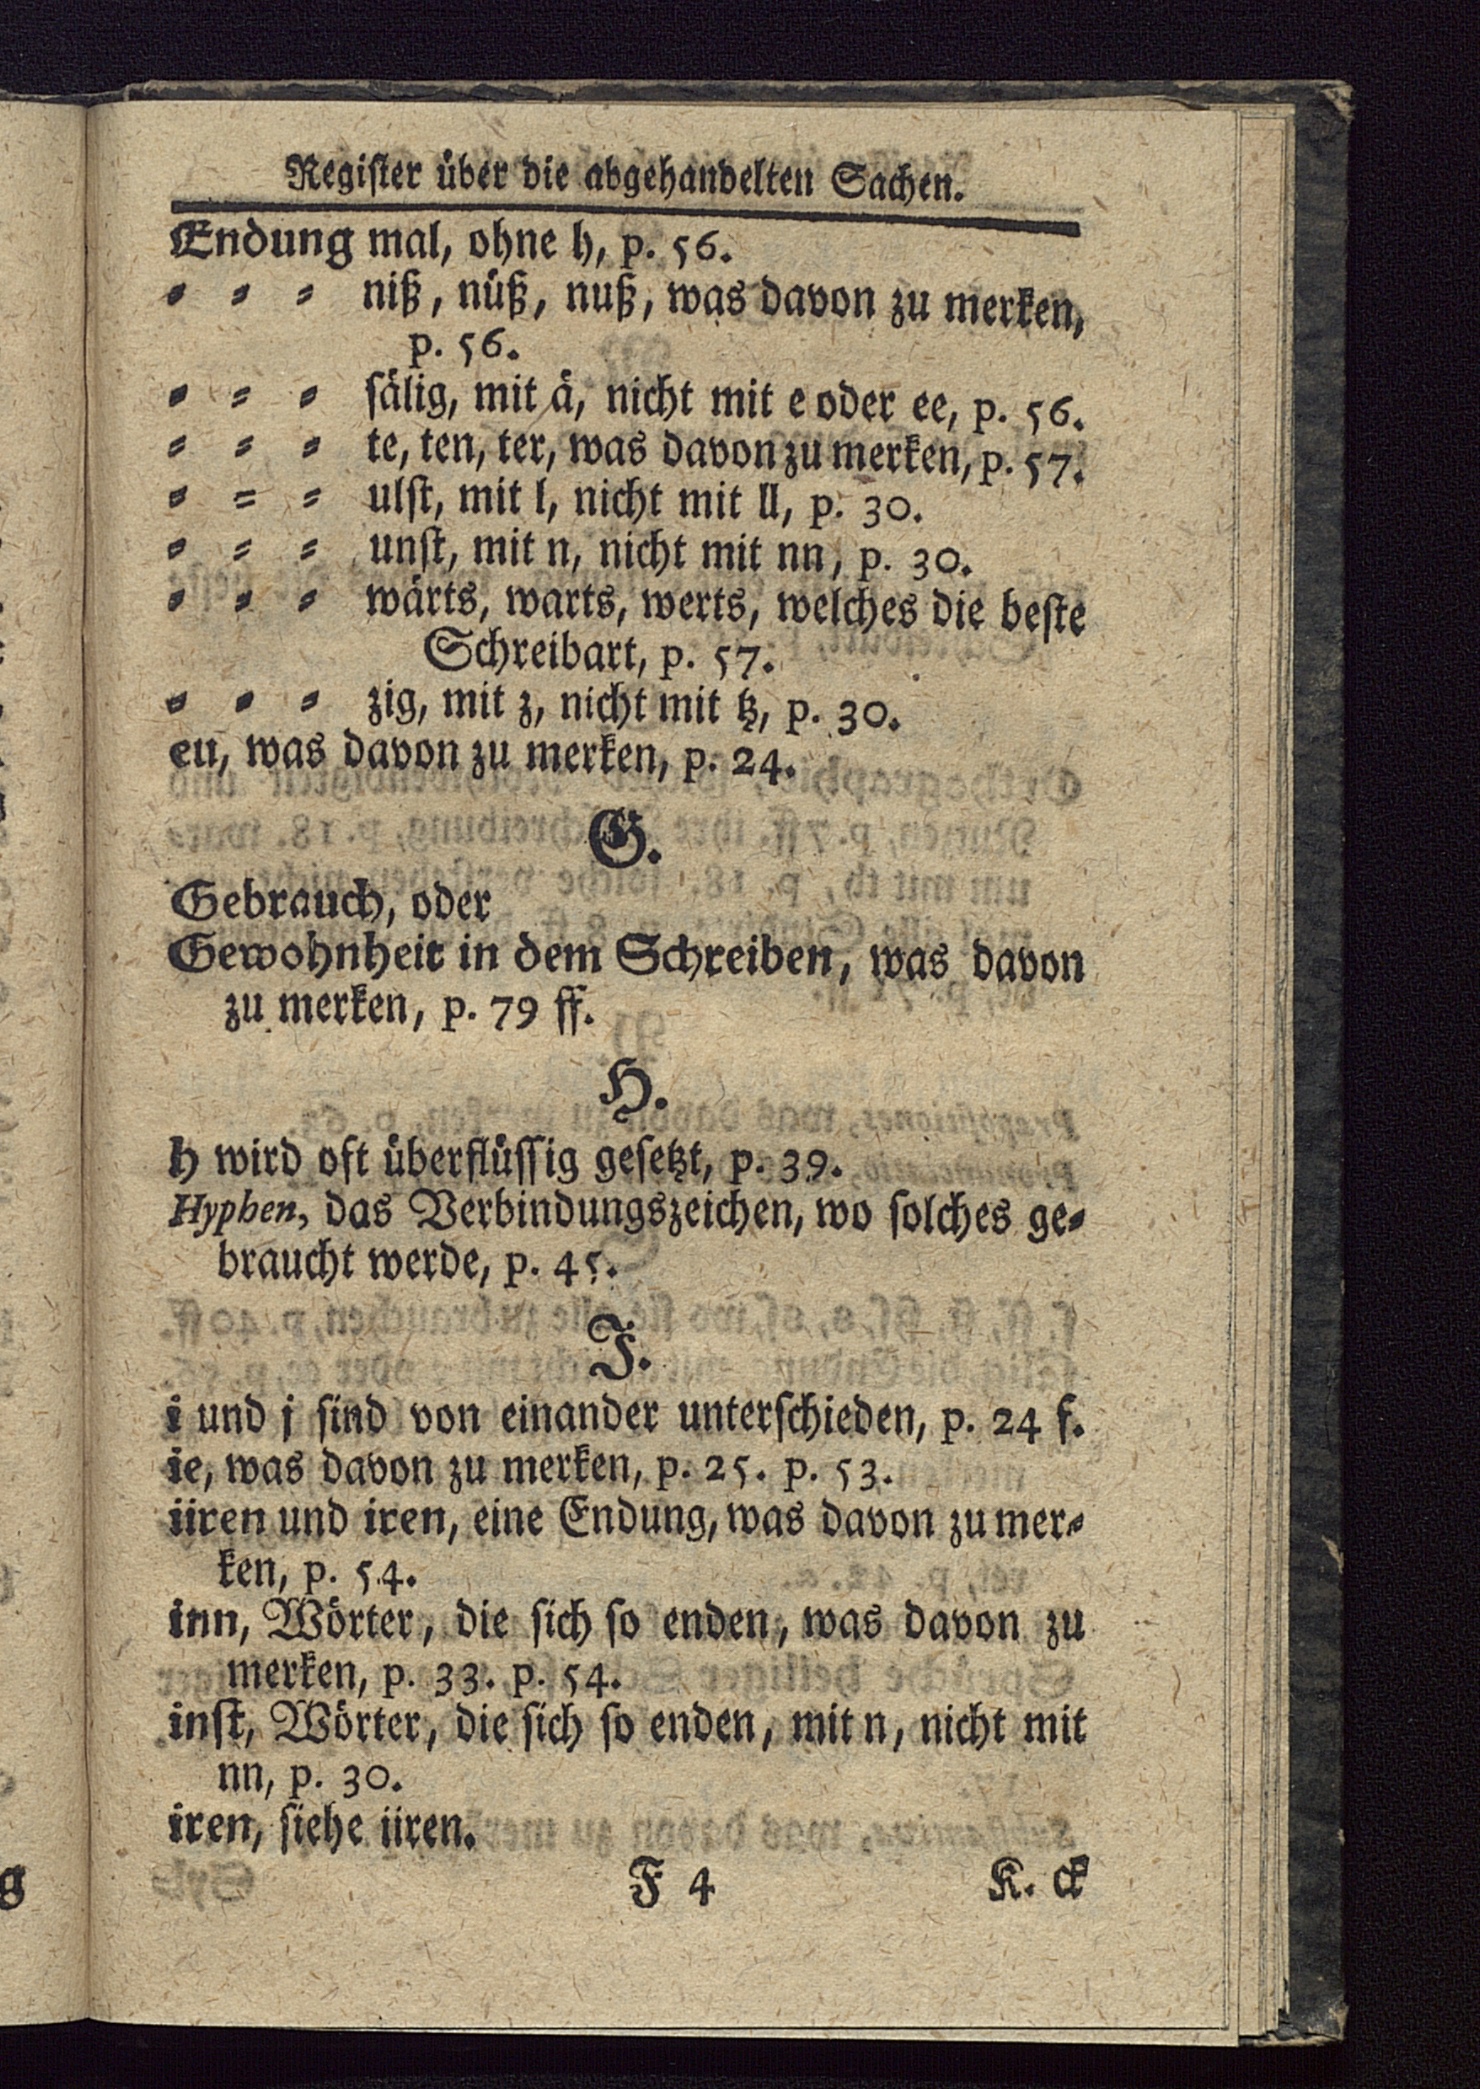 Regiſter über die abgehandelten Sachen.
Endung mal, ohne h, p. 56.
⸗ ⸗ ⸗ niß, nüß, nuß, was davon zu merken,
p. 56.
⸗ ⸗ ⸗ ſälig, mit ä, nicht mit e oder ee, p. 56.
⸗ ⸗ ⸗ te, ten, ter, was davon zu merken, p. 57.
⸗ ⸗ ⸗ ulſt, mit l, nicht mit ll, p. 30.
⸗ ⸗ ⸗ unſt, mit n, nicht mit nn, p. 30.
⸗ ⸗ ⸗ wärts, warts, werts, welches die beſte
Schreibart, p. 57.
⸗ ⸗ ⸗ zig, mit z, nicht mit tz, p. 30.
eu, was davon zu merken, p. 24.
G.
Gebrauch, oder
Gewohnheit in dem Schreiben, was davon
zu merken, p. 79 ff.
H.
h wird oft überflüſſig geſetzt, p. 39.
Hyphen, das Verbindungszeichen, wo ſolches ge⸗
braucht werde, p. 45.
J.
i und j ſind von einander unterſchieden, p. 24 f.
ie, was davon zu merken, p. 25. p. 53.
iiren und iren, eine Endung, was davon zu mer⸗
ken, p. 54.
inn, Wörter, die ſich ſo enden, was davon zu
merken, p. 33. p. 54.
inſt, Wörter, die ſich ſo enden, mit n, nicht mit
nn, p. 30.
iren, ſiehe iiren.
F 4 K. ck